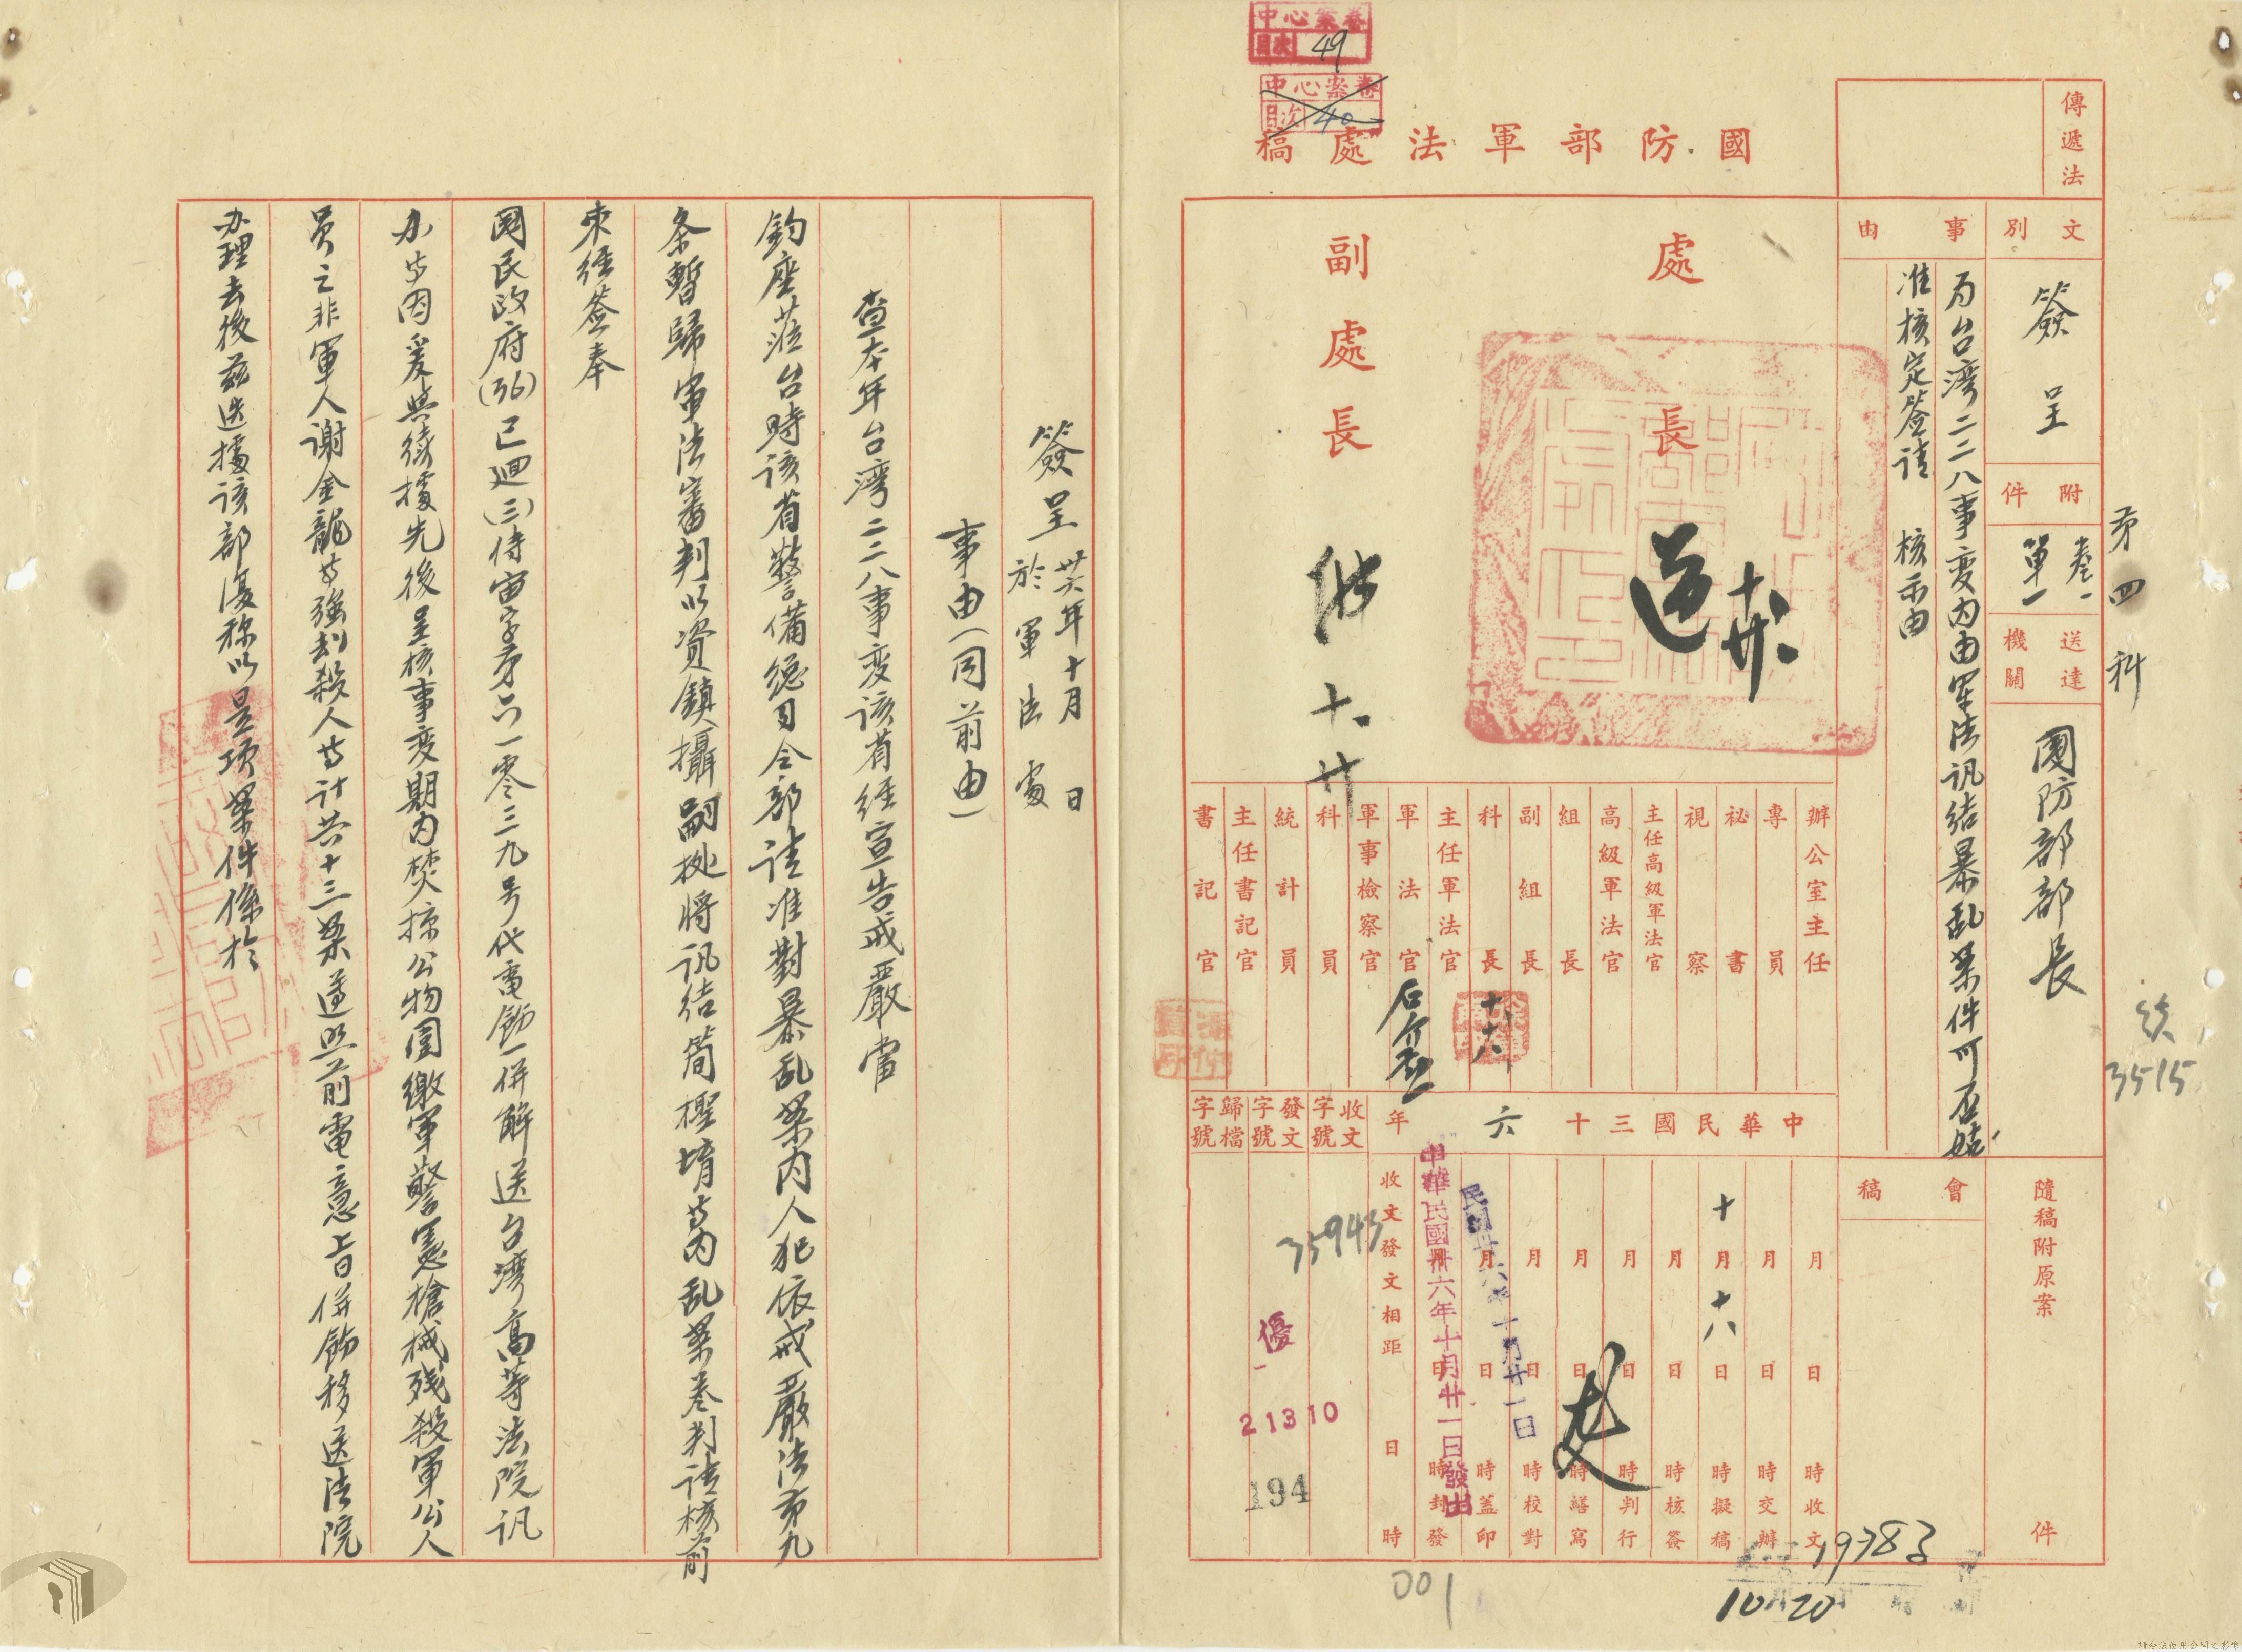 中心案卷
目次 49
中心案卷
目次 40
國防部軍法處稿
傳遞法
文別
簽呈
附件
卷一
單一
送達機關
國防部部長
第四科
3515
事由
為台湾二二八事变内由军法讯结暴乱案件可否
准核定签请 核示由
處長
副處長
十 廿
辦公室主任
專員
秘書
視察
主任高級軍法官
高級軍法官
組長
副組長
科長
主任軍法官
軍法官
軍事檢察官
科員
統計員
主任書記官
書記官
十 十六
會稿
隨稿附原案 件
中華民國三十六年
月 日 時收文
月 日 時交辦
十月十八日 時擬稿
月 日 時核簽
月 日 時判行
月 日 時繕寫
月 日 時校對
月 日 時蓋印
日 時封發
民國卅六年十月廿一日
中華民國卅六年十月廿一日發出
收文發文相距 日 時
收文字號
發文字號
歸檔字號
35943
優
21310
194
001
19383
10 20
簽呈 卅六年十月 日
於軍法處
事由(同前由)
查本年台湾二二八事变该省经宣告戒嚴當
鈞座蒞台時该省警備總司令部请准對暴乱案内人犯依戒嚴法第九
条暫歸軍法審判以資鎮攝嗣拠將讯结简檉堉等内乱案卷判请核前
來经签奉
國民政府(36)已迴(三)侍宙字第六一零三九号代電飭一併解送台湾高等法院讯
办等因爰与續據先後呈核事变期内焚掠公物圍繳軍警憲槍械殘殺軍公人
員之非軍人谢金龍等强劫殺人等计共十三案遵照前電意旨併飭移送法院
办理去後兹迭據该部復称以是项案件係於